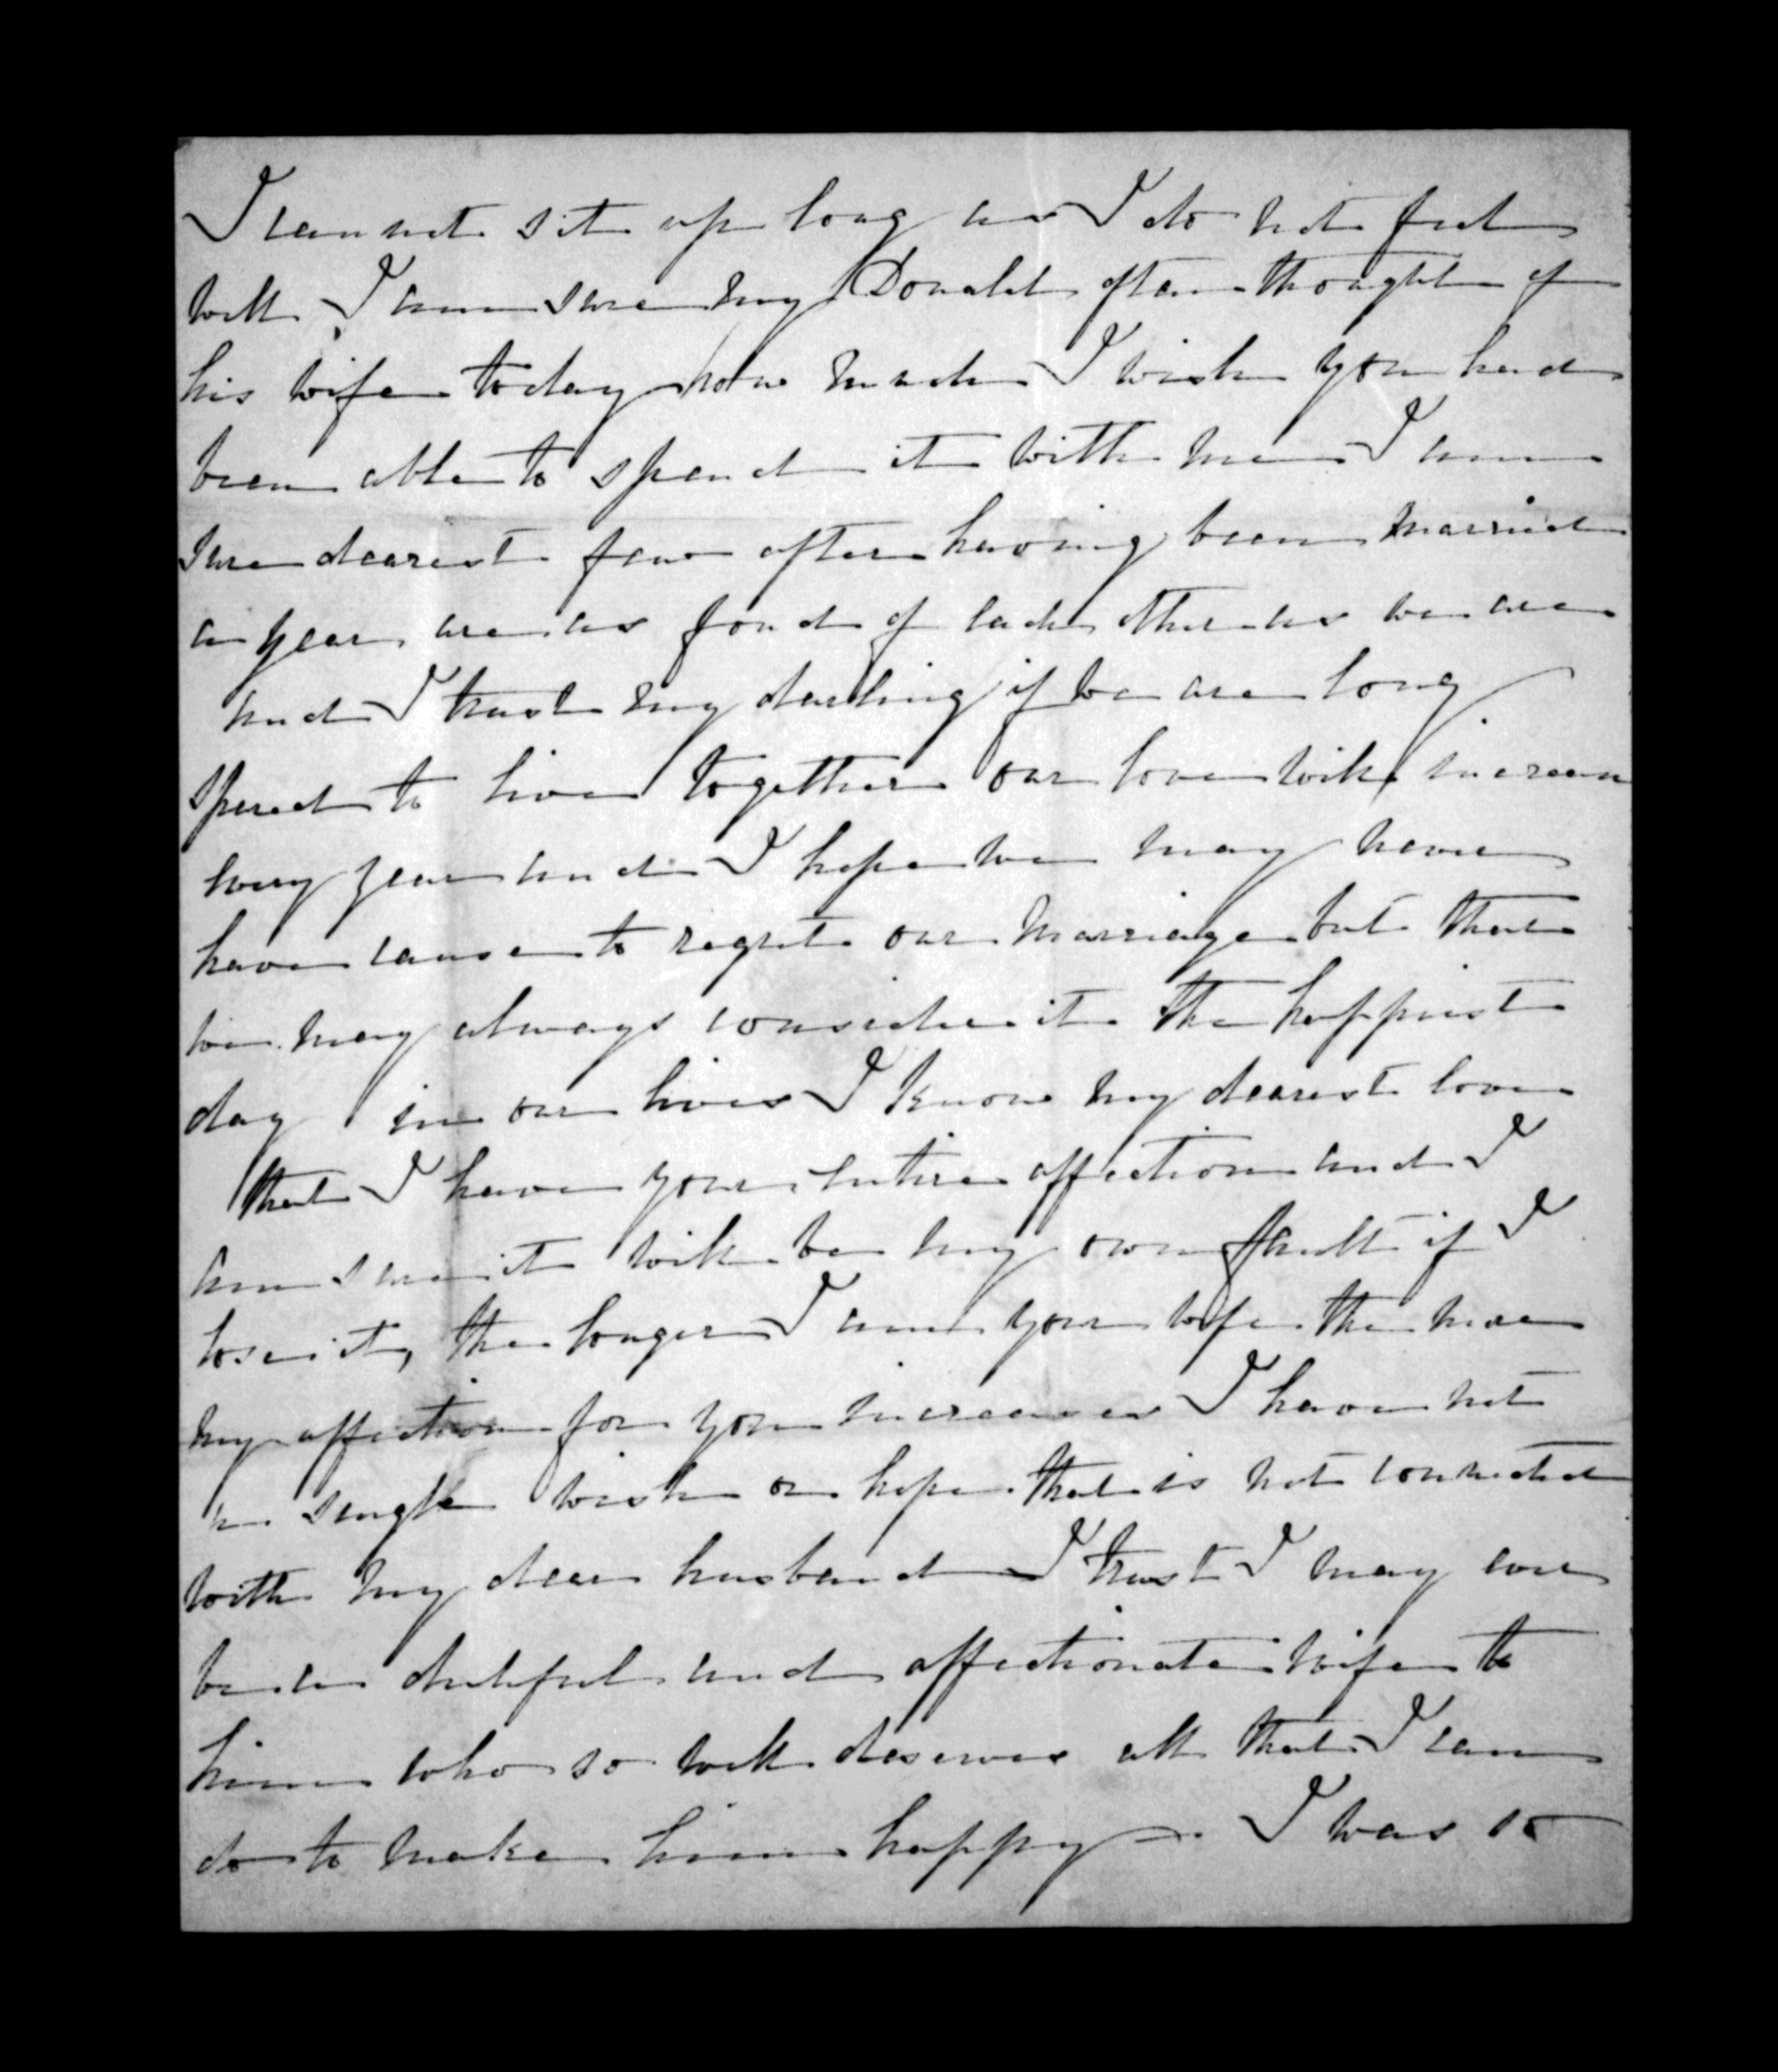 I cannot sit up long as I do not feel
well I am sure my Donald often thought of
his wife today how much I wish you had
been able to spend it with me I am
sure dearest few after having been married
a year are as fond of each other as we are
and I trust my darling if we are long
spared to live together our love will increase
every year and I hope we may never
have cause to regret our marriage but that
we may always consider it the happiest
day in our lives I know my dearest love
that I have your entire affection and I
am sure it will be my own fault if I
lose it, the longer I am your wife the more
my affection for you increases I have not
a single wish or hope that is not connected
with my dear husband I trust I may ever
be a dutiful and affectionate wife to
him who so well deserves all that I can
do to make him happy - I was so